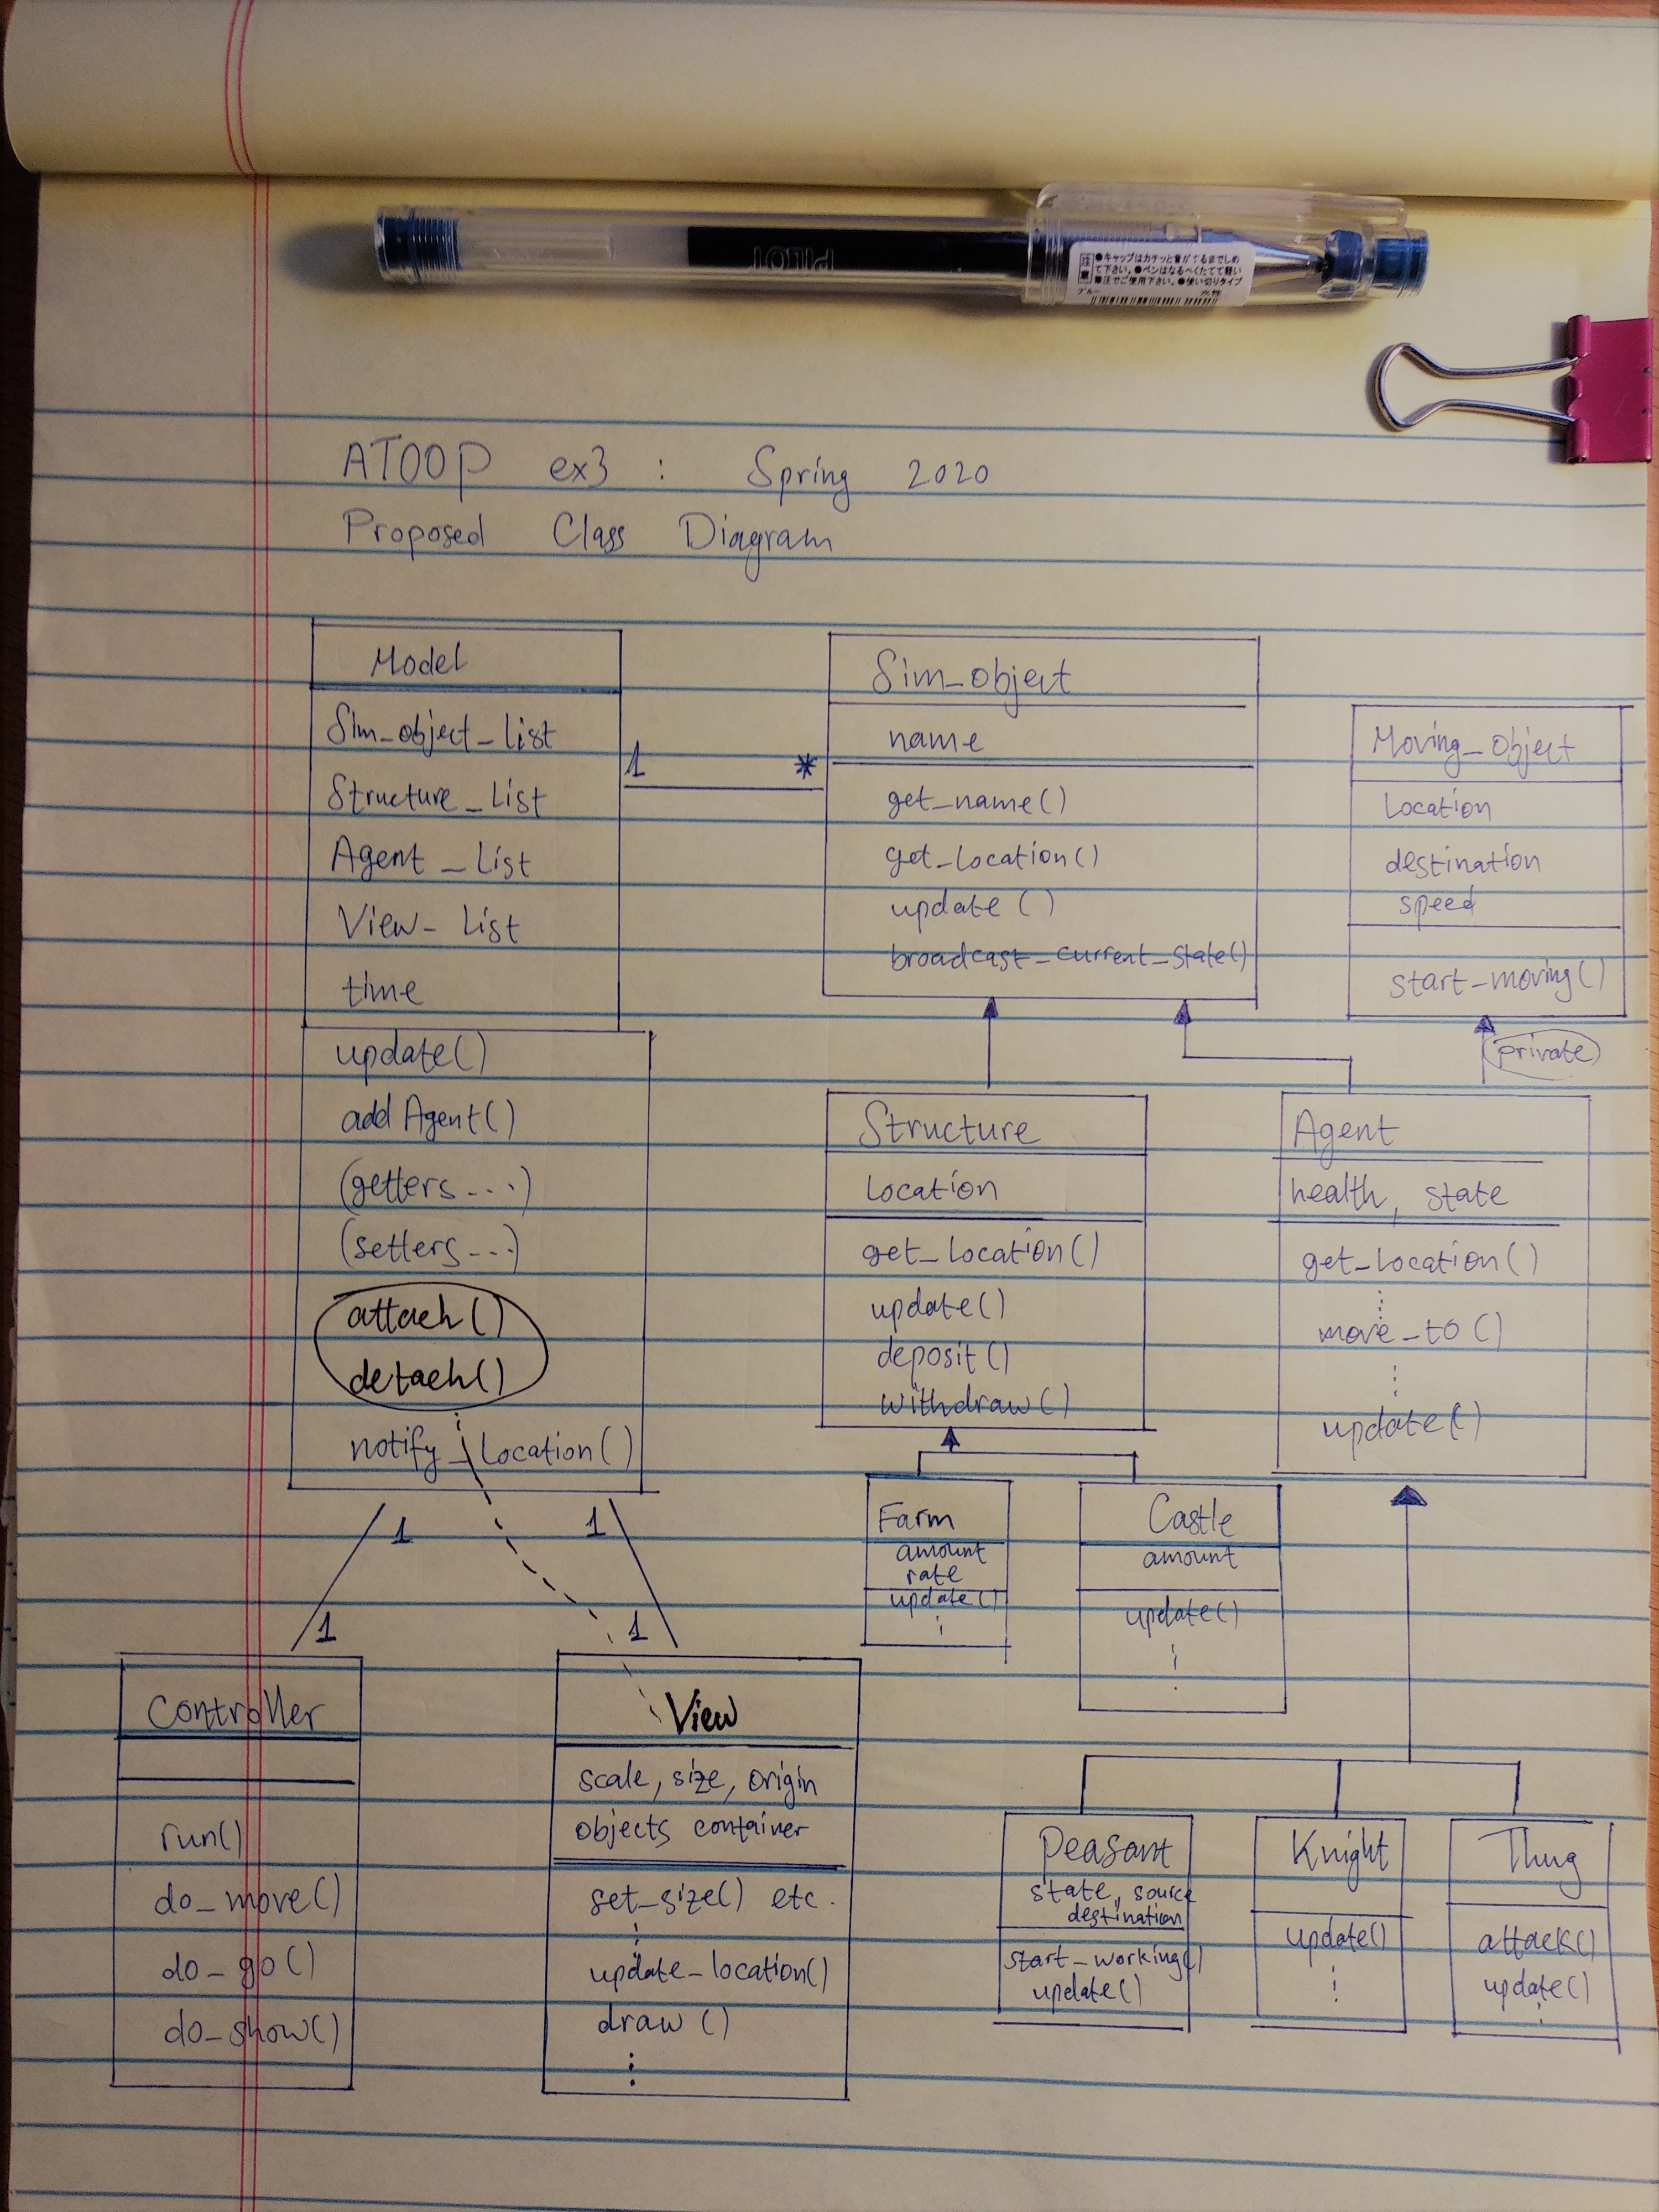 PILOT
注意
●キャップはカチッと音がするまでしめ
て下さい。●ペンはなるべくたてて軽い
筆圧でご使用下さい。●使い切りタイプ
ブルー 水性
ATOOP ex3 : Spring 2020
Proposed Class Diagram
Model
Sim_object_list
Structure_List
Agent_List
View_List
time
update()
add Agent()
(getters...)
(setters...)
attach()
detach()
notify_Location()
1 *
Sim_object
name
get_name()
get_Location()
update()
broadcast_current_state()
Moving_Object
Location
destination
speed
start_moving()
private
Structure
Location
get_Location()
update()
deposit()
withdraw()
Agent
health, state
get_Location()
move_to()
update()
Farm
amount
rate
update()
Castle
amount
update()
1 1
1 1
Controller
run()
do_move()
do_go()
do_show()
View
scale, size, origin
objects container
set_size() etc.
update_location()
draw()
Peasant
state, source
destination
start_working()
update()
Knight
update()
Thug
attack()
update()